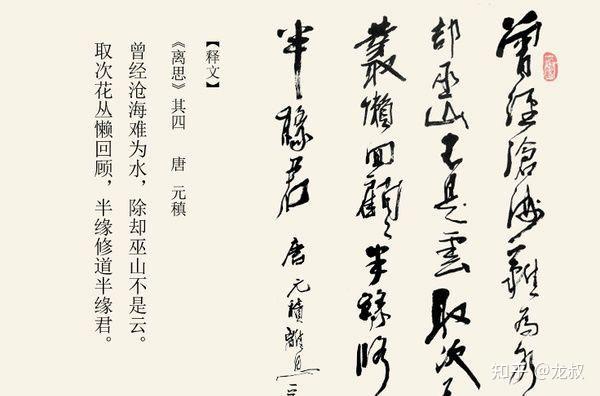 曾經滄海難為水
却巫山不是雲取次
叢懶回顧半緣修
半緣君 唐元稹離思
【释文】
《离思》其四 唐 元稹
曾经沧海难为水，除却巫山不是云。
取次花丛懒回顾，半缘修道半缘君。
知乎 @龙叔